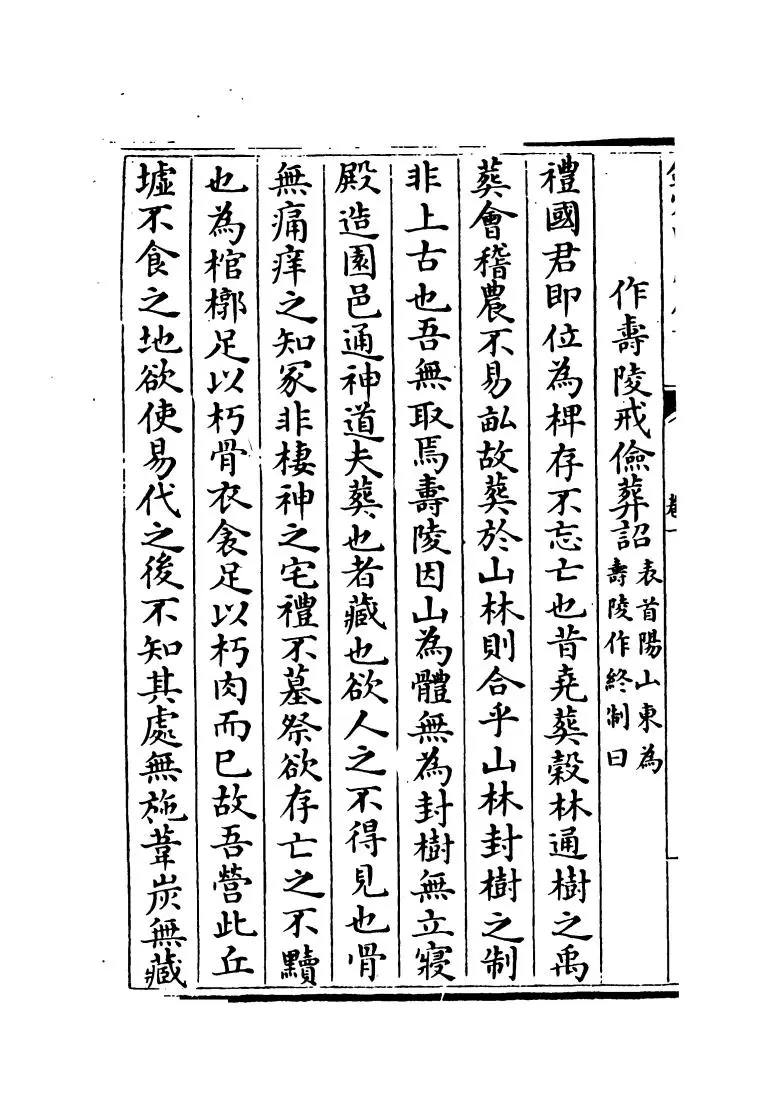 作壽陵戒儉葬詔表首陽山東為壽陵作終制曰
禮國君即位為椑存不忘亡也昔堯葬穀林通樹之禹
葬會稽農不易畝故葬於山林則合乎山林封樹之制
非上古也吾無取焉壽陵因山為體無為封樹無立寢
殿造園邑通神道夫葬也者藏也欲人之不得見也骨
無痛痒之知冢非棲神之宅禮不墓祭欲存亡之不黷
也為棺槨足以朽骨衣衾足以朽肉而已故吾營此丘
墟不食之地欲使易代之後不知其處無施葦炭無藏